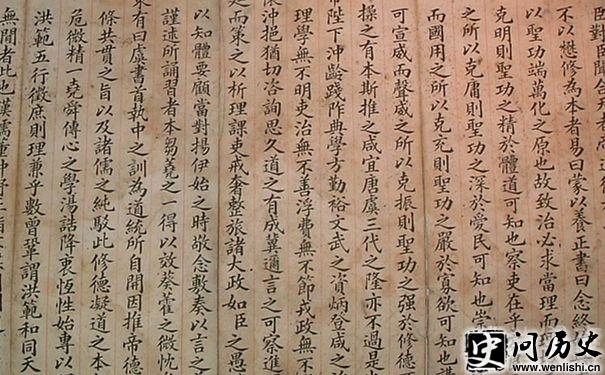 臣對臣聞
不以懋修為本者易曰蒙以養正書曰念終
以聖功端萬化之原也故致治必求當理而
克明則聖功之精於體道可知也察吏在乎
之所以克庸則聖功之深於愛民可知也崇
而國用之所以克充則聖功之嚴於寡欲可知也
可宣威而聲威之所以克振則聖功之強於修德
操之有本斯推之咸宜唐虞三代之隆亦不過是
帝陛下沖齡踐阼典學方勤裕文武之資炳登咸之
理學無不明吏治無不善浮費無不節戎政無不
懷沖挹猶切咨詢思久道之有成冀邇言之可察進
廷而策之以析理課吏戒奢整旅諸大政如臣之愚
以知體要顧當對揚伊始之時敬念敷奏以言之
謹述所誦習者本芻蕘之一得以效葵藿之微忱
來有曰虞書首執中之訓為道統所自開因推帝德
條共貫之旨以及諸儒之純駁此修德凝道之本
危微精一堯舜傳心之學湯誥降衷恆性始專以
洪範五行徵庶則理兼乎數曾鞏謂洪範和同天
無間者此也漢儒董仲舒
史问历史
www.wenlishi.cn